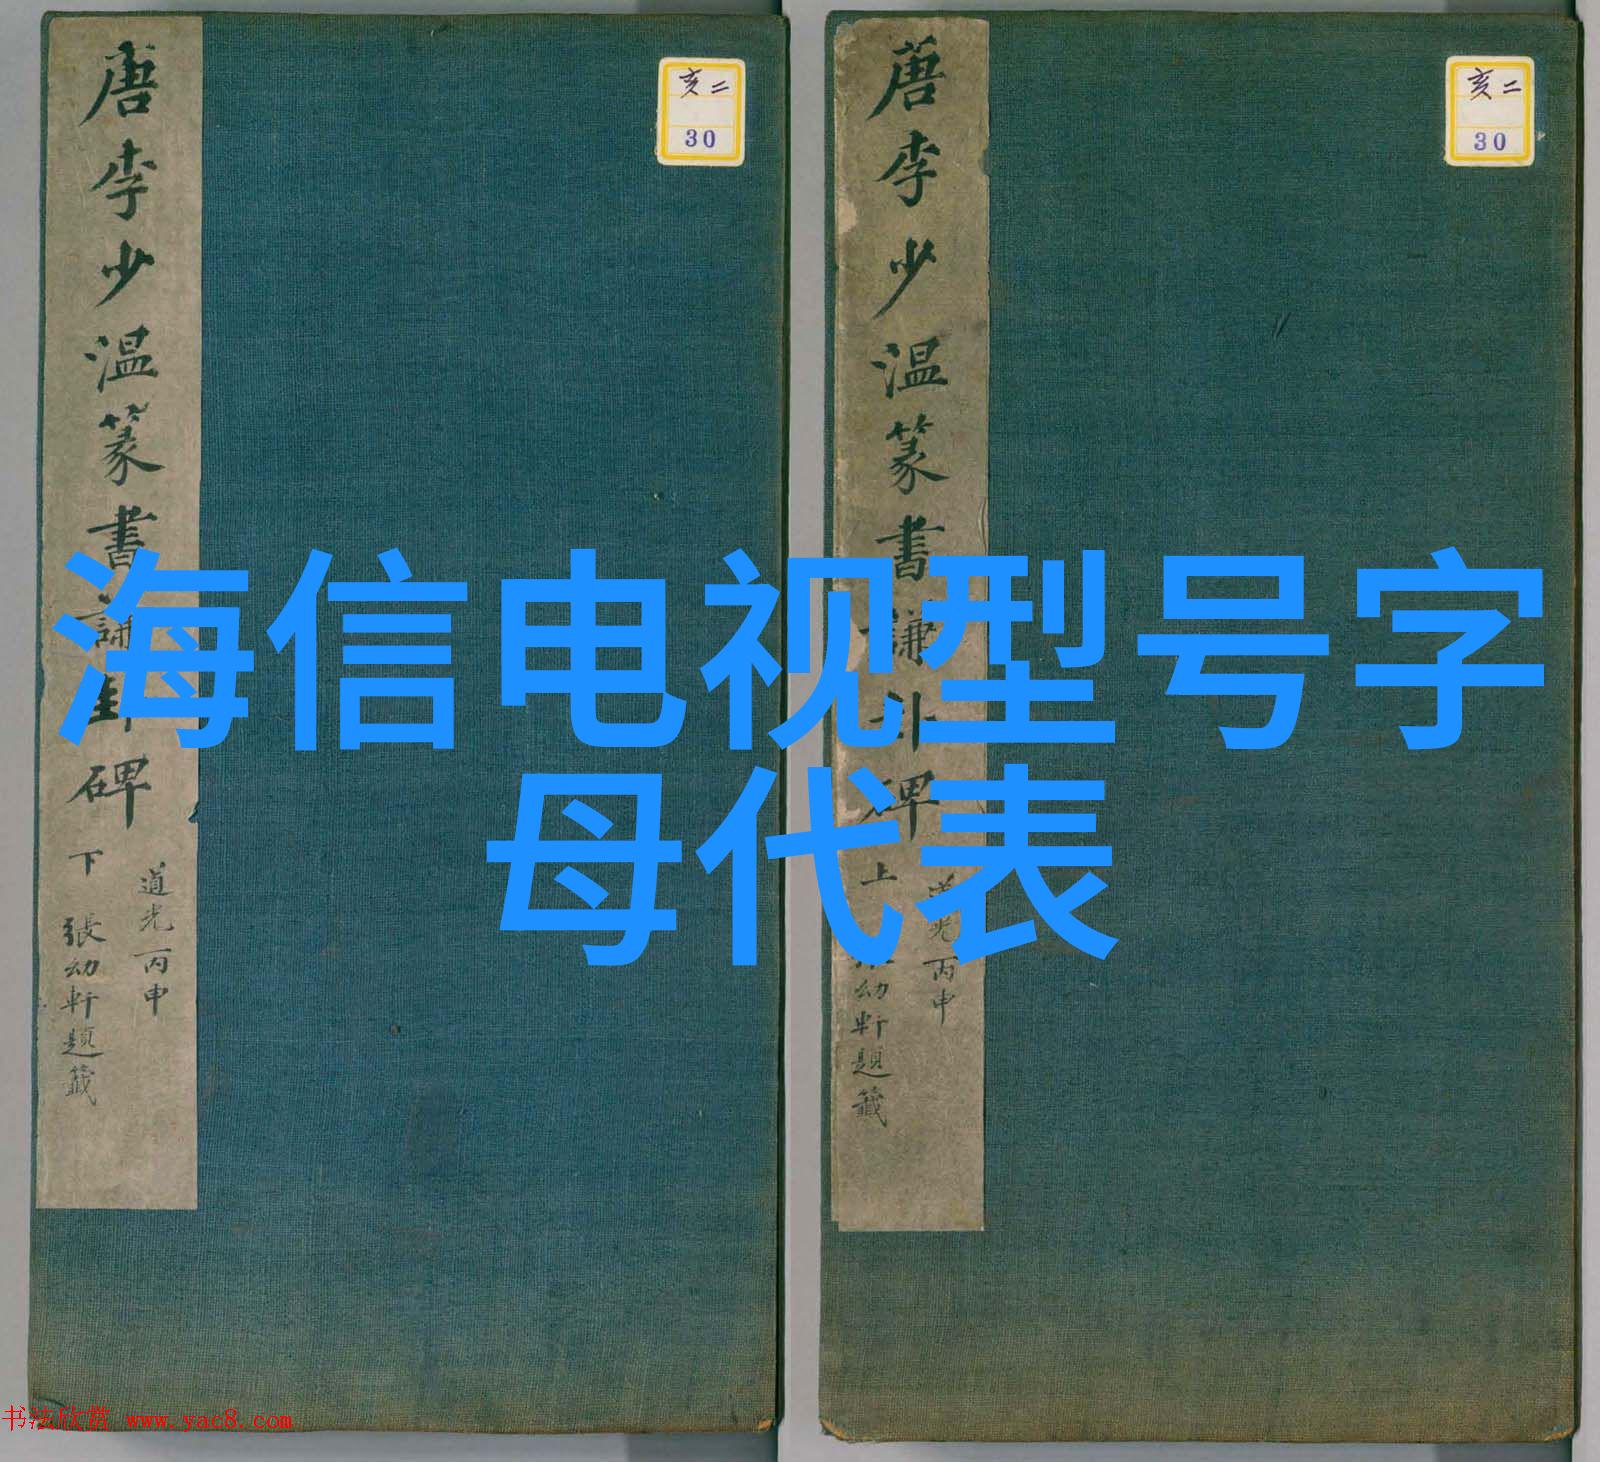 唐李少温篆書謙卦碑
下
道光丙申
張幼軒題籤
亥二
30
唐李少温篆書謙卦碑
上
道光丙申
幼軒題籤
亥二
30
海信电视型号字
母代表
书法欣赏 www.yac8.com